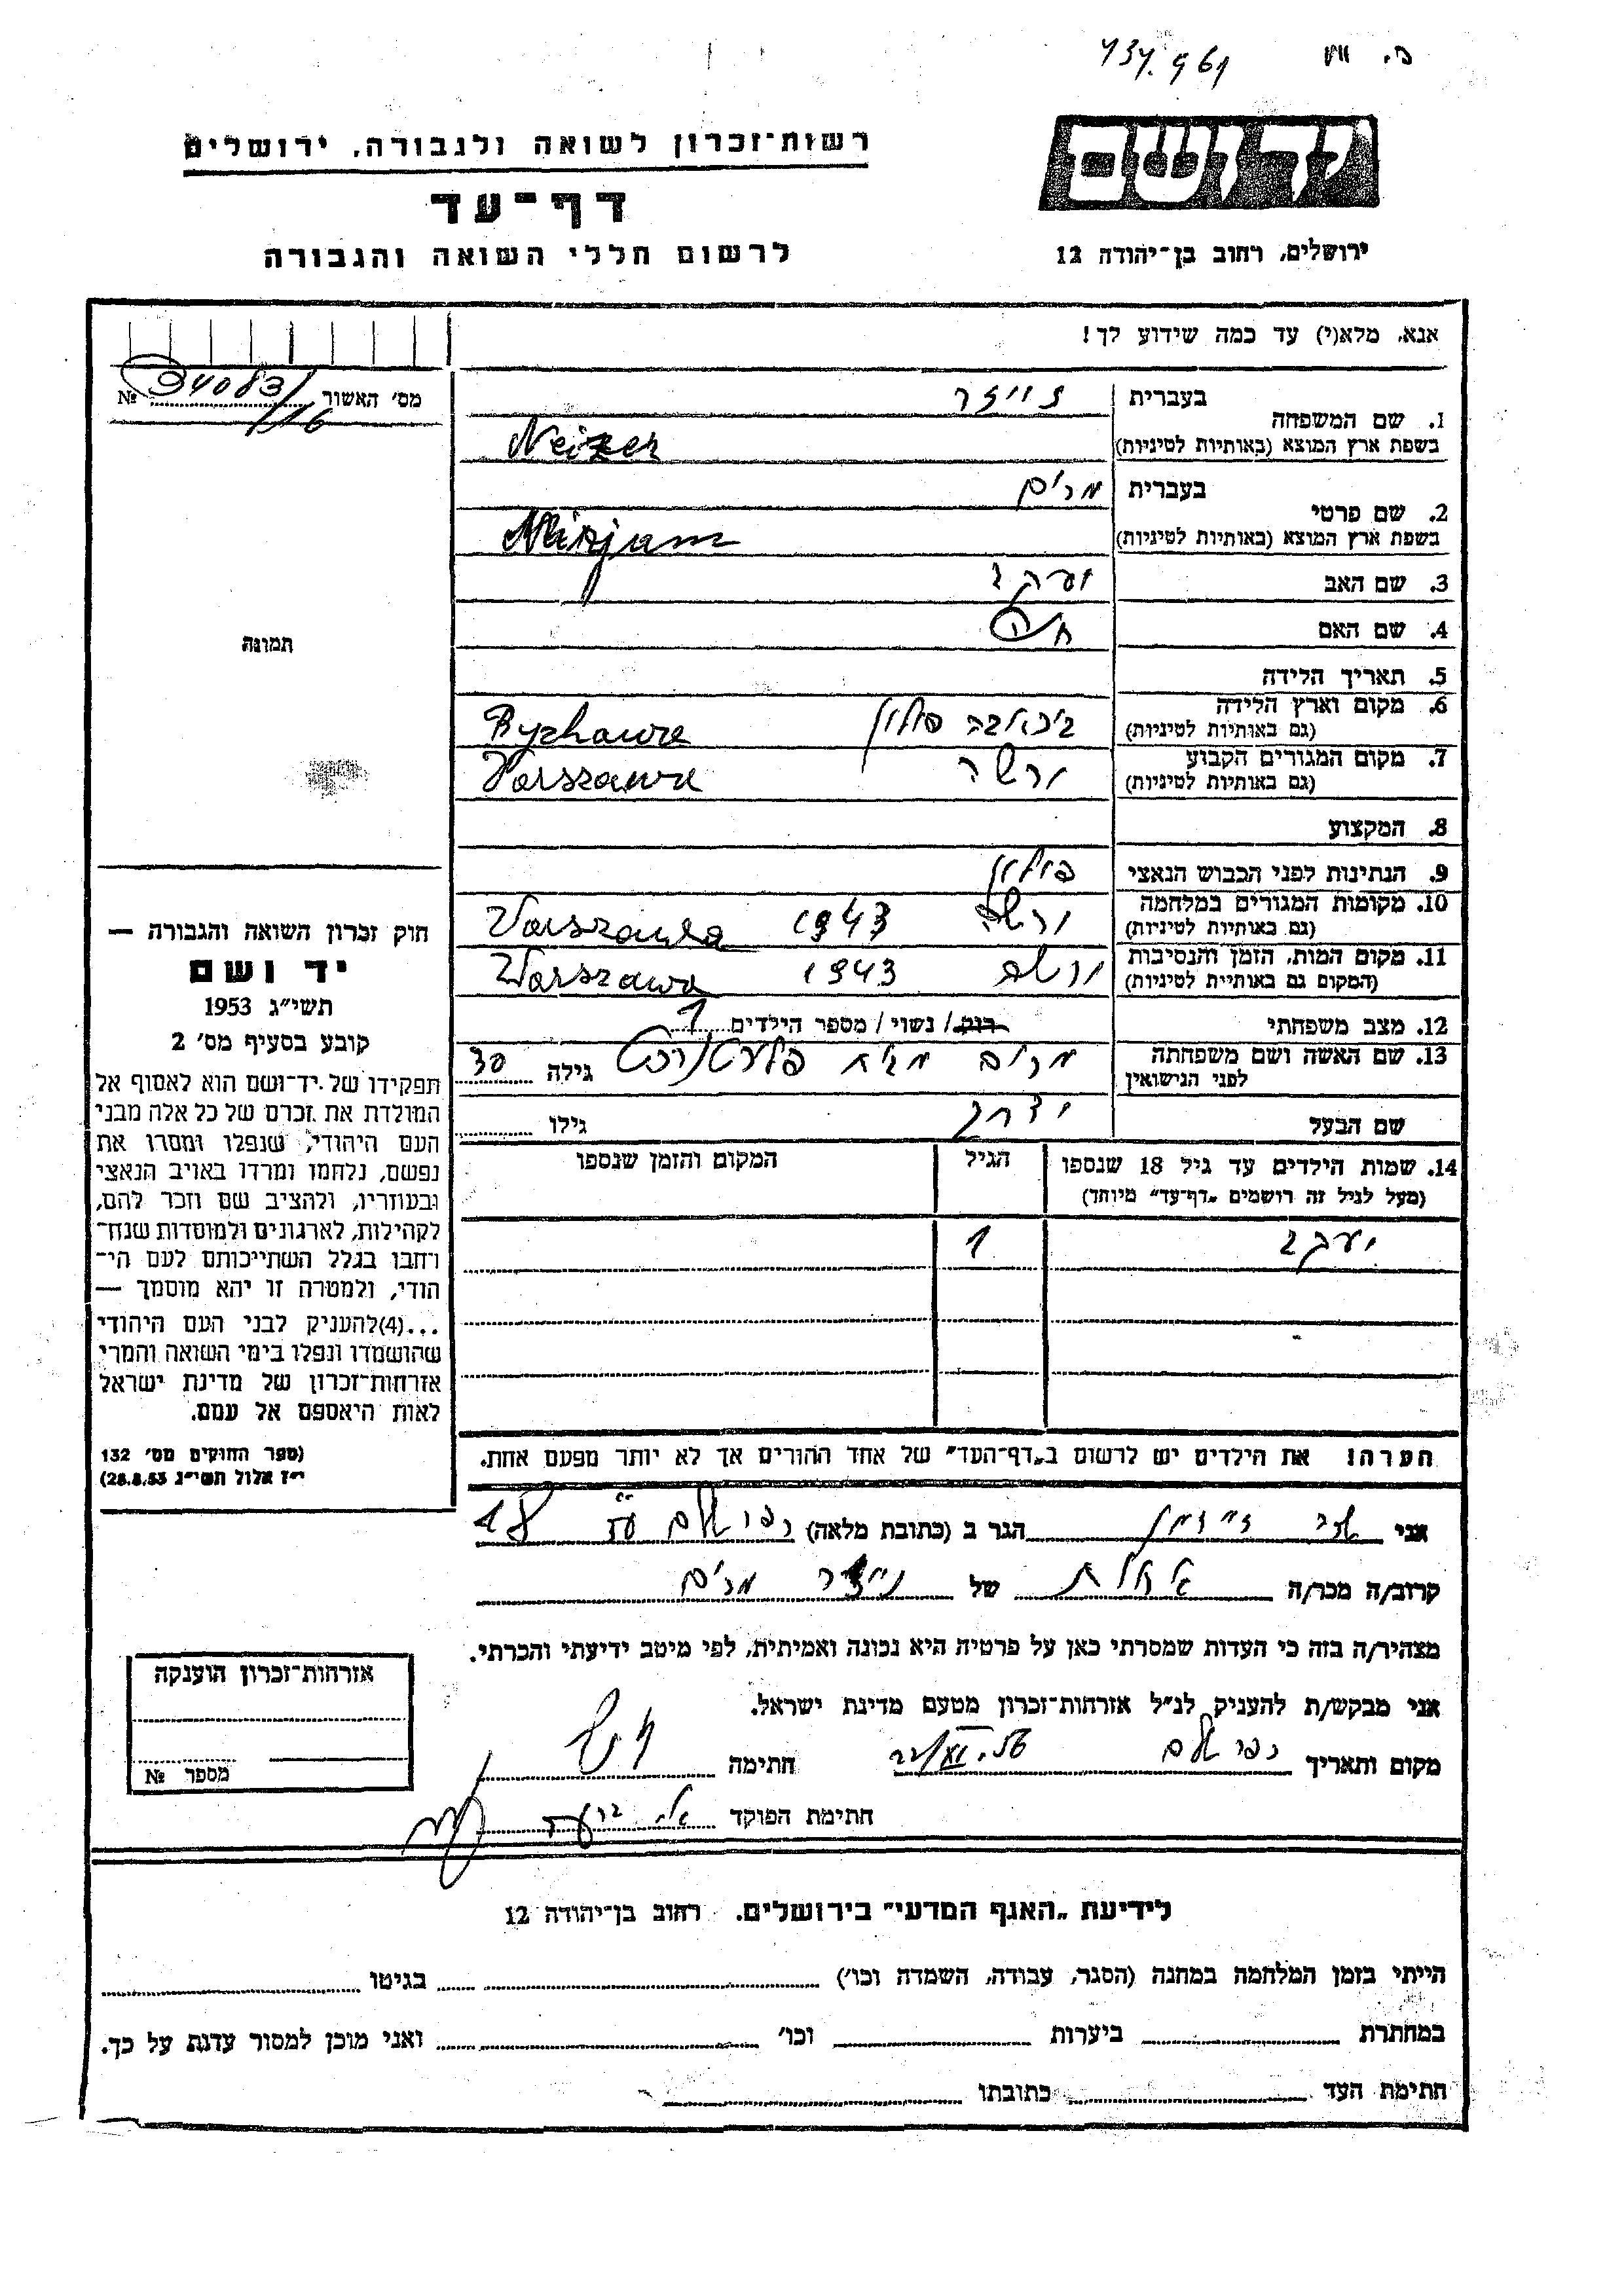 434.961
רשות־זכרון לשואה ולגבורה, ירושלים
דף־עד
לרשום חללי השואה והגבורה
ידושם
ירושלים, רחוב בן־יהודה 12
אנא, מלא(י) עד כמה שידוע לך!
מס' האשור 34083/116 №
1. שם המשפחה
בעברית
בשפת ארץ המוצא (באותיות לטיניות) Neizer
2. שם פרטי
בעברית מרים
בשפת ארץ המוצא (באותיות לטיניות) Mirjam
3. שם האב יעקב
4. שם האם חיה
5. תאריך הלידה
6. מקום וארץ הלידה
(גם באותיות לטיניות) פולין Byzhawa
7. מקום המגורים הקבוע
(גם באותיות לטיניות) ורשה Varszawa
8. המקצוע
9. הנתינות לפני הכבוש הנאצי פולין
10. מקומות המגורים במלחמה
(גם באותיות לטיניות) ורשה 1943 Varszawa
11. מקום המות, הזמן והנסיבות
(המקום גם באותיית לטיניות) ורשה 1943 Warszawa
12. מצב משפחתי רווק / נשוי / מספר הילדים 1
13. שם האשה ושם משפחתה
לפני הנישואין מרים גילה 30
שם הבעל יצחק גילו
14. שמות הילדים עד גיל 18 שנספו הגיל המקום והזמן שנספו
(מעל לגיל זה רושמים "דף־עד" מיוחד)
יעקב 1
הערה! את הילדים יש לרשום ב"דף־העד" של אחד ההורים אך לא יותר מפעם אחת.
תמונה
חוק זכרון השואה והגבורה —
יד ושם
תשי"ג 1953
קובע בסעיף מס' 2
תפקידו של יד־ושם הוא לאסוף אל
המולדת את זכרם של כל אלה מבני
העם היהודי, שנפלו ומסרו את
נפשם, נלחמו ומרדו באויב הנאצי
ובעוזריו, ולהציב שם וזכר להם,
לקהילות, לארגונים ולמוסדות שנח־
רחבו בגלל השתייכותם לעם הי־
הודי, ולמטרה זו יהא מוסמך —
...(4)להעניק לבני העם היהודי
שהושמדו ונפלו בימי השואה והמרי
אזרחות־זכרון של מדינת ישראל
לאות היאספם אל עמם.
(ספר החוקים מס' 132
י"ז אלול תשי"ג 28.8.53)
אני הגר ב (כתובת מלאה) 18
קרוב/ה מכר/ה של נייזר מרים
מצהיר/ה בזה כי העדות שמסרתי כאן על פרטיה היא נכונה ואמיתית, לפי מיטב ידיעתי והכרתי.
אני מבקש/ת להעניק לנ"ל אזרחות־זכרון מטעם מדינת ישראל.
מקום ותאריך חתימה
חתימת הפוקד
אזרחות־זכרון הוענקה
מספר №
לידיעת "האגף המדעי" בירושלים. רחוב בן־יהודה 12
הייתי בזמן המלחמה במחנה (הסגר, עבודה, השמדה וכו') בגיטו
במחתרת ביערות וכו' ואני מוכן למסור עדות על כך.
חתימת העד כתובתו